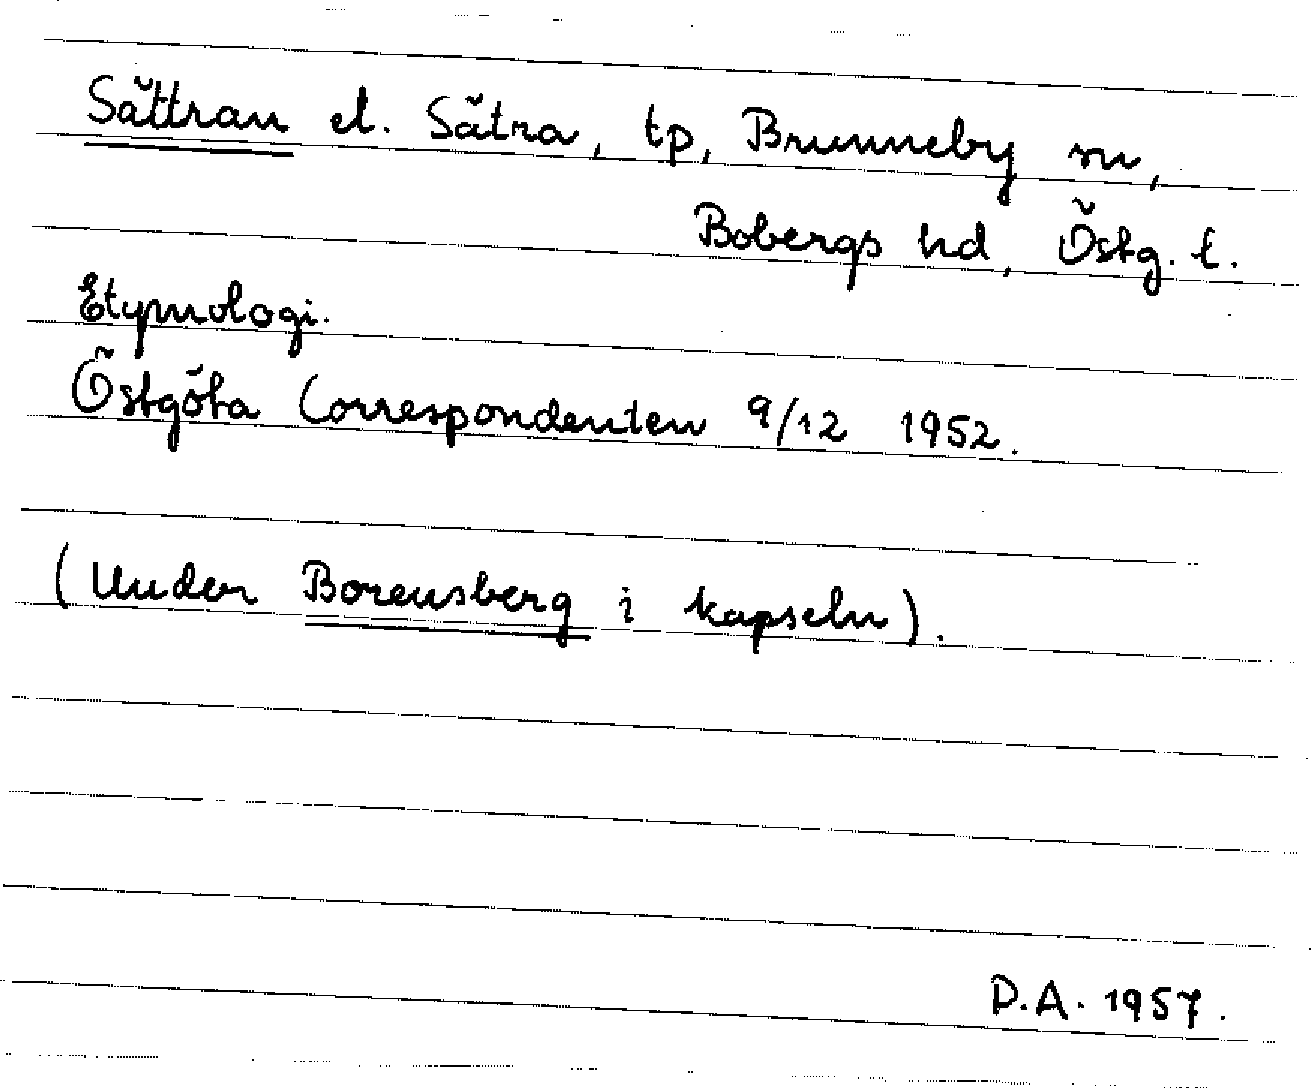 Sättran el. Sätra, tp, Brunneby sn,
Bobergs hd, Östg. l.
Etymologi.
Östgöta Correspondenten 9/12 1952.
(Under Borensberg i kapseln).
D.A. 1957.